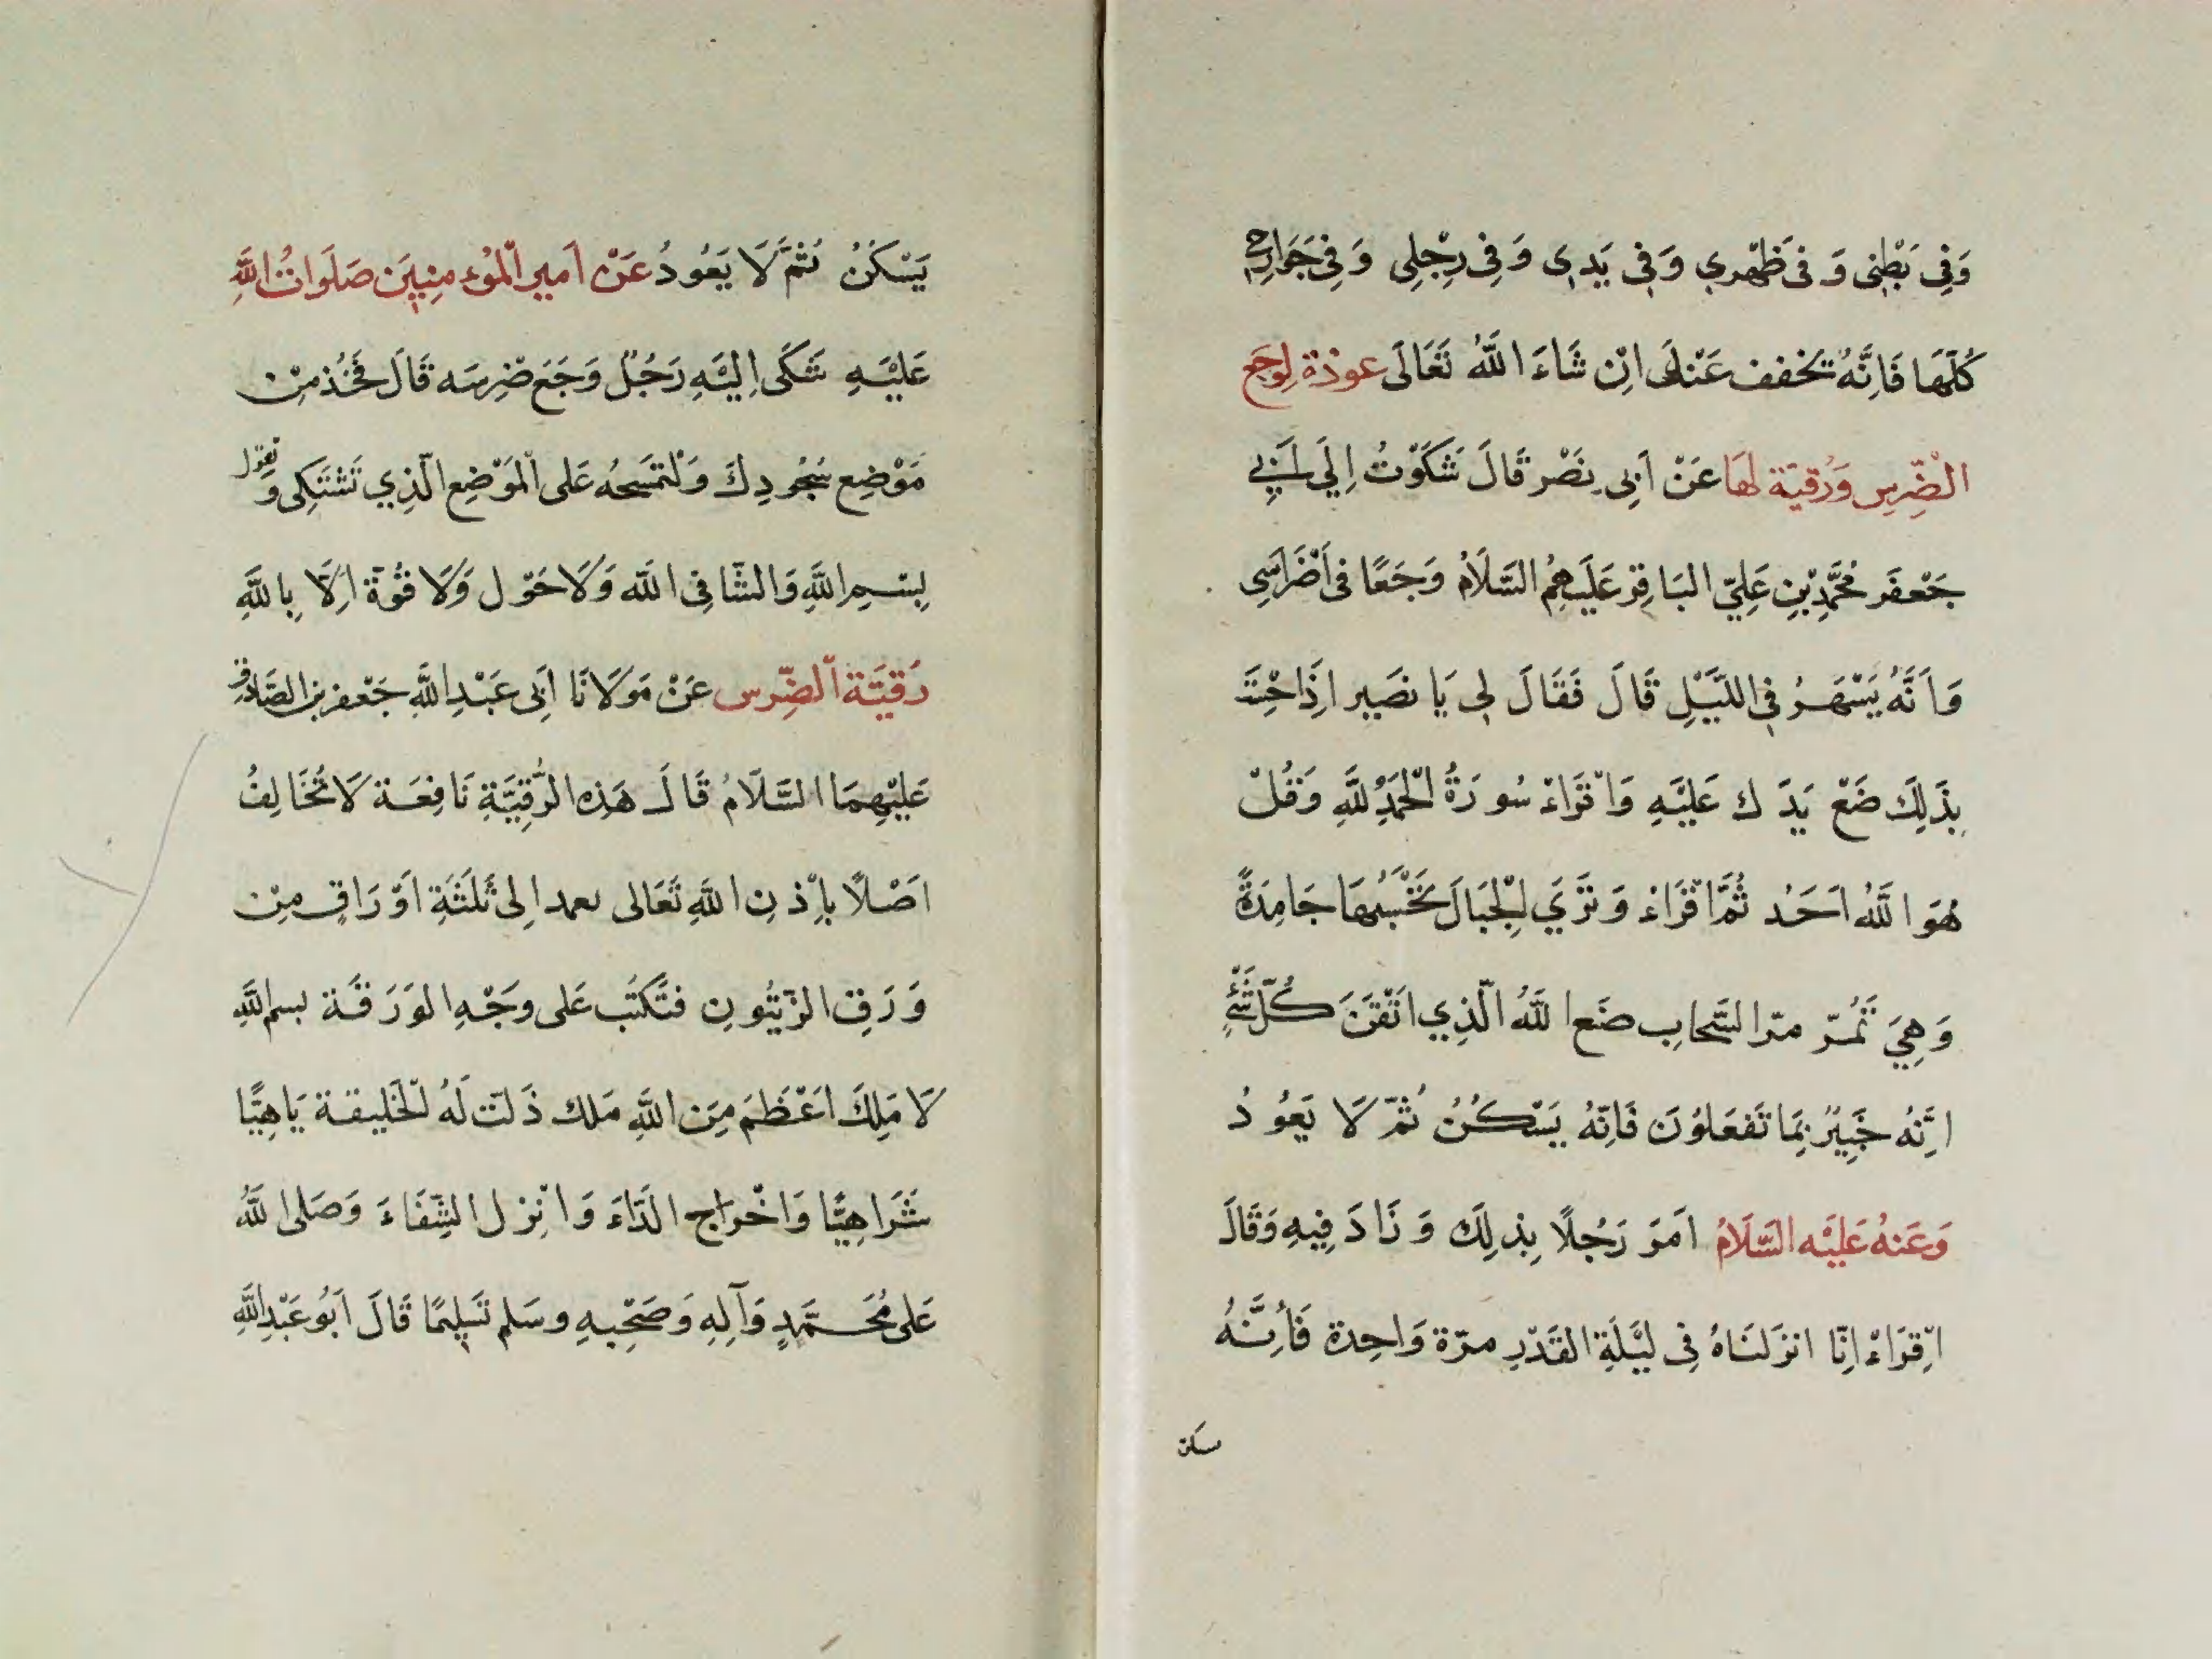 وَفِي بَطْنِي وَفِي ظَهْرِي وَفِي يَدِي وَفِي رِجْلِي وَفِي جَوَارِحِي
كُلِّهَا فَاِنَّهُ يُخَفف عَنْكَ اِنْ شَاءَ اللَّهُ تَعَالَى عوذة لِوَجَع
الضِّرسِ وَرُقيَة لَهَا عَنْ اَبِي نَصْر قَالَ شَكَوْتُ اِلَي اَبِي
جَعْفَر مُحَمَّدِ بْنِ عَلِيّ البَاقِر عَلَيهِمُ السَّلَامُ وَجَعًا فِي اَضْرَاسِي
وَاَنَّهُ يَسْهَرُ فِي اللَّيْلِ قَالَ فَقَالَ لِي يَا نصَير اِذَا حْتَ
بِذَلِكَ ضَعْ يَدَك عَلَيْهِ وَاقْرَاءْ سُورَةُ الْحَمْدُ لِلَّهِ وَقُلْ
هُوَ اللَّهُ اَحَدُ ثُمَّ اقْرَاءْ وَتَرَي الْجِبَالَ تَحْسَبُهَا جَامِدَةً
وَهِيَ تَمُرّ مرّ السَّحابِ صنَع اللَّهُ الَّذِي اَتْقَنَ كُلّ شَيْءٍ
اِنَّهُ خَبِيرُ بِمَا تَفْعَلُونَ فَاِنَّهُ يَسْكُنُ ثمّ لَا يَعُودُ
وَعَنهُ عَلَيْه السَّلَامُ اَمَرَ رَجُلًا بِذلِكَ وَزَادَ فِيهِ وَقَالَ
اِقرَاءْ اِنَّا انزَلنَاهُ فِي لَيْلَةِ القَدْرِ مرّة وَاحِدة فَاِنَّهُ
يسكن
يَسْكَنُ ثُمَّ لَا يَعُودُ عَنْ اَمير الْمُؤمِنِيَن صَلَوَاتُ اللَّهِ
عَلَيْهِ شَكَى اِلَيْهِ رَجُلٌ وَجَعَ ضِرسَه قَالَ فَخُذ مِنْ
مَوْضِع سُجُودِكَ وَلتمسَحهُ عَلى الْمَوْضِع الَّذِي تَشْتَكِى وَ تقول
بِسْمِ اللَّهِ وَالشَّافِي اللَّه وَلَا حَوْل وَلَا قُوّة اِلَّا بِاللَّهِ
رَقيَة الضِّرس عَنْ مَوْلَانَا اَبِي عَبْدِ اللَّهِ جَعْفر بن الصَّادِق
عَلَيْهِمَا السَّلَامُ قَالَ هَذِه الرُّقيَةِ نَافِعَة لَا تُخَالِفُ
اَصْلًا بِاِذنِ اللَّهِ تَعَالى تعمد اِلى ثَلَثَةِ اَوْرَاقٍ مِنْ
وَرَقِ الزَّيْتُونِ فتَكتُب عَلى وَجْهِ الوَرَقَة بسم اللَّهِ
لَا مَلِكَ اَعْظَمَ مِنَ اللَّهِ مَلك ذَلتْ لَهُ الْخَلِيقة يَاهِيًّا
شَرَاهِيًّا وَاخْرَاج الدَّاءَ وَانْزِل الشِّفَاءَ وَصَلى اللَّهُ
عَلى مُحَمَّدٍ وَآلِهِ وَصَحْبِهِ وسَلم تَسلِيمًا قَالَ اَبُو عَبْدِ اللَّهِ